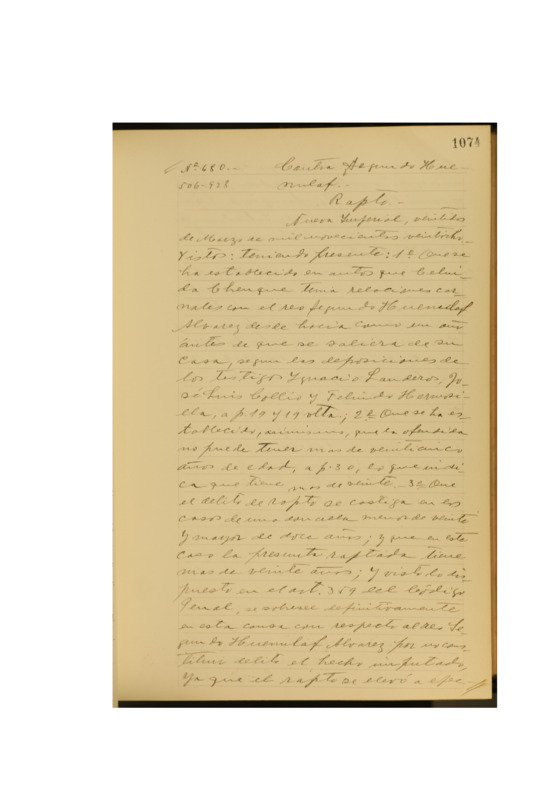 1074
Nº 680.- Contra Segundo Hue-
506-928 nulaf.-
Rapto.-
Nueva Imperial, veintidos
de Marzo de mil novecientos veintiocho.
Vistos: teniendo presente: 1º Que se
ha establecido en autos que
da Chenque tenia relaciones car-
nales con el reo Segundo Huenulaf
Alvarez desde hacia como un año
antes de que se saliera de su
casa, segun las deposiciones de
los testigos Ygnacio Landeros, Jo-
sé Luis Collio y Felindo Hermosi-
lla, a f. 19 y 19 vtta.; 2º Que se ha es-
tablecido, asimismo, que la ofendida
no puede tener mas de veinticinco
años de edad, a f. 30, lo que indi-
ca que tiene mas de veinte. 3º Que
el delito de rapto se castiga en los
casos de una doncella menor de veinte
y mayor de doce años; y que en este
caso la presunta raptada tiene
mas de veinte años; y visto lo dis-
puesto en el art. 359 del Código
Penal, se sobresee definitivamente
en esta causa con respecto al reo Se-
gundo Huenulaf Alvarez por no cons-
tituir delito el hecho imputado,
ya que el rapto se llevó a efec-